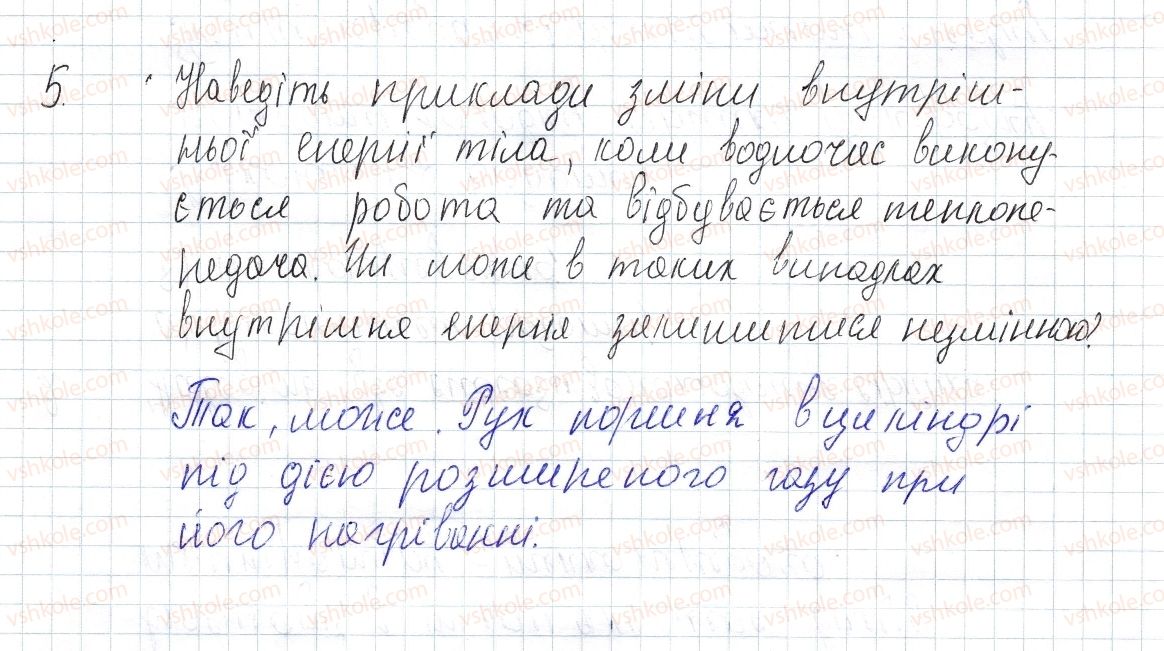 5. Наведіть приклади зміни внутріш-
ньої енергії тіла, коли водночас викону-
ється робота та відбувається теплопе-
редача. Чи може в таких випадках
внутрішня енергія залишитися незмінною?
Так, може. Рух поршня в циліндрі
під дією розширеного газу при
його нагріванні.